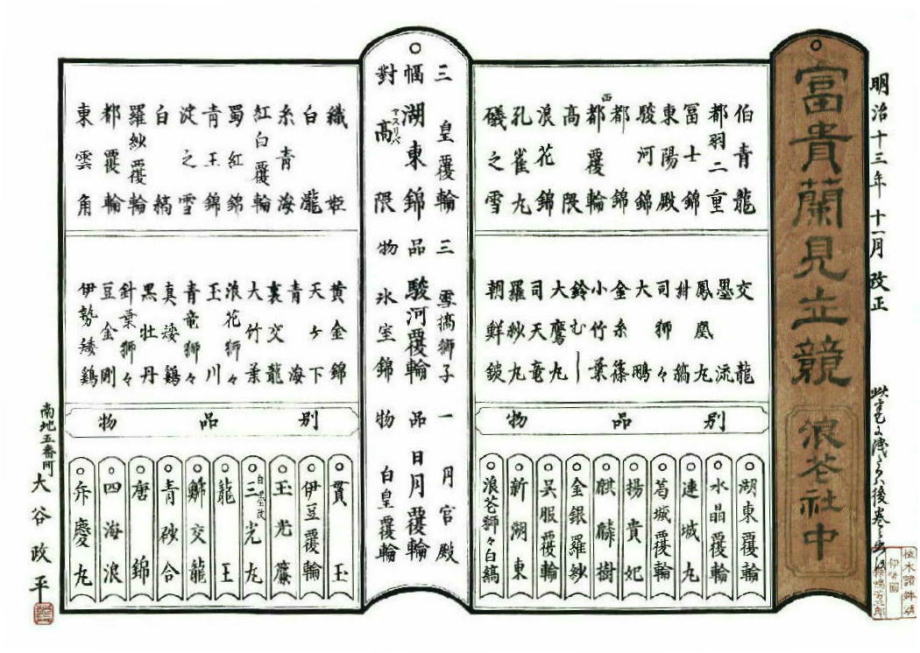 明治十三年十一月改正
富貴蘭見立競
浪芲社中
伯青龍
都羽二重
冨士錦
東陽殿
駿河錦
都錦
西都覆輪
高隈
浪花錦
孔雀丸
磯之雪
交龍
墨流
鳳凰丸
絣縞
司獅々
大鵬
金糸篠
小竹葉
鈴むし
大鷹丸
司天竜
羅紗丸
朝鮮鉄
別品物
湖東覆輪
水晶覆輪
連城丸
葛城覆輪
揚貴妃
麒麟樹
金銀羅紗
呉服覆輪
新湖東
浪芲獅々白縞
三幅對
皇覆輪
湖東錦
高隈
三品物
雪搞獅子
駿河覆輪
氷室錦
一品物
月宮殿
日月覆輪
白皇覆輪
織姫
白瀧
糸青海
紅白覆輪
蜀紅錦
青王錦
淀之雪
白縞
羅紗覆輪
都覆輪
東雲角
黄金錦
天ヶ下
青海
裏交龍
大竹葉
浪花獅々
玉川
青竜獅々
真矮鶏
黒牡丹
針葉獅々
豆金剛
伊勢矮鶏
別品物
貫玉
伊豆覆輪
玉光簾
三光丸
龍王
交龍
青砂合
唐錦
四海浪
弁慶丸
南地五番町
大谷政平